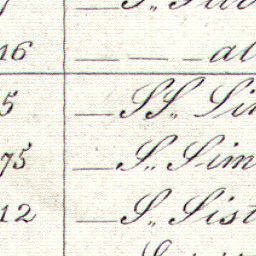 16 — — — al
5 — SS„ Si
75 — S„ Sim
12 — S„ Sist